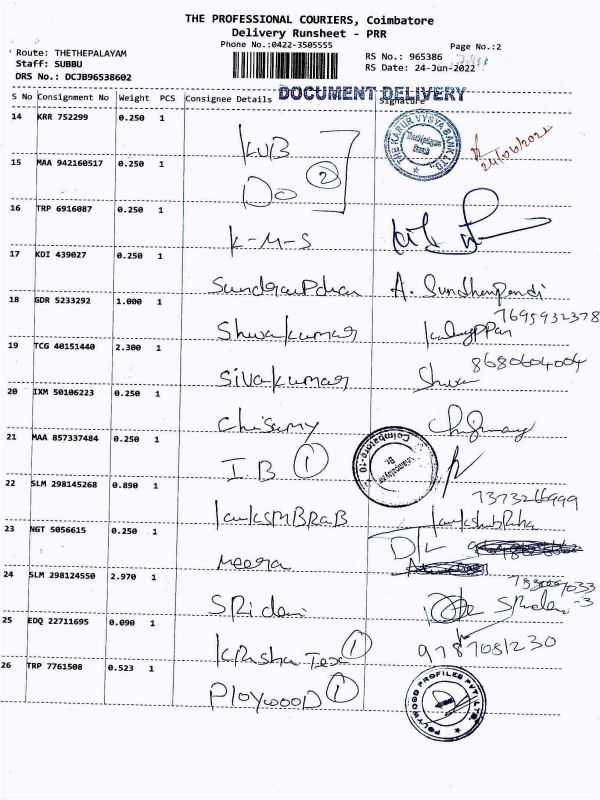 THE PROFESSIONAL COURIERS, Coimbatore
Delivery Runsheet - PRR
Phone No.:0422-3505555
Page No.:2
Route: THETHEPALAYAM
Staff: SUBBU
DRS No.: DCJB96538602
RS No.: 965386
RS Date: 24-Jun-2022
DOCUMENT DELIVERY
S No Consignment No Weight PCS Consignee Details Signature
14 KRR 752299 0.250 1 KVB
THE KARUR VYSYA BANK LTD.
24/06/2022
15 MAA 942160517 0.250 1 Do 2
16 TRP 6916087 0.250 1 K-M-S
17 KDI 439027 0.250 1
18 GDR 5233292 1.000 1 Shivakumar 7695932378
19 TCG 40151440 2.300 1 Sivakumar 8680604004
20 IXM 50106223 0.250 1
21 MAA 857337484 0.250 1 I.B 1
Coimbatore-10
22 SLM 298145268 0.890 1
23 NGT 5056615 0.250 1 meera D/L
24 SLM 298124550 2.970 1 SRidevi SRidevi
25 EDQ 22711695 0.090 1 1 9787081230
26 TRP 7761508 0.523 1 PloywooD 1
POLYWOOD PROFILES PVT. LTD.